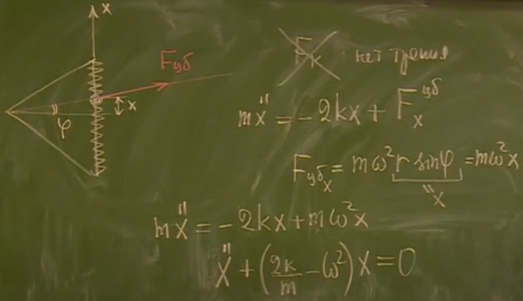 x
F_цб
φ
x
F_k нет трения
mẍ = - 2kx + F_x^цб
F_цб_x = mω²r sinφ = mω²x
"x
mẍ = - 2kx + mω²x
ẍ + (2k/m - ω²)x = 0